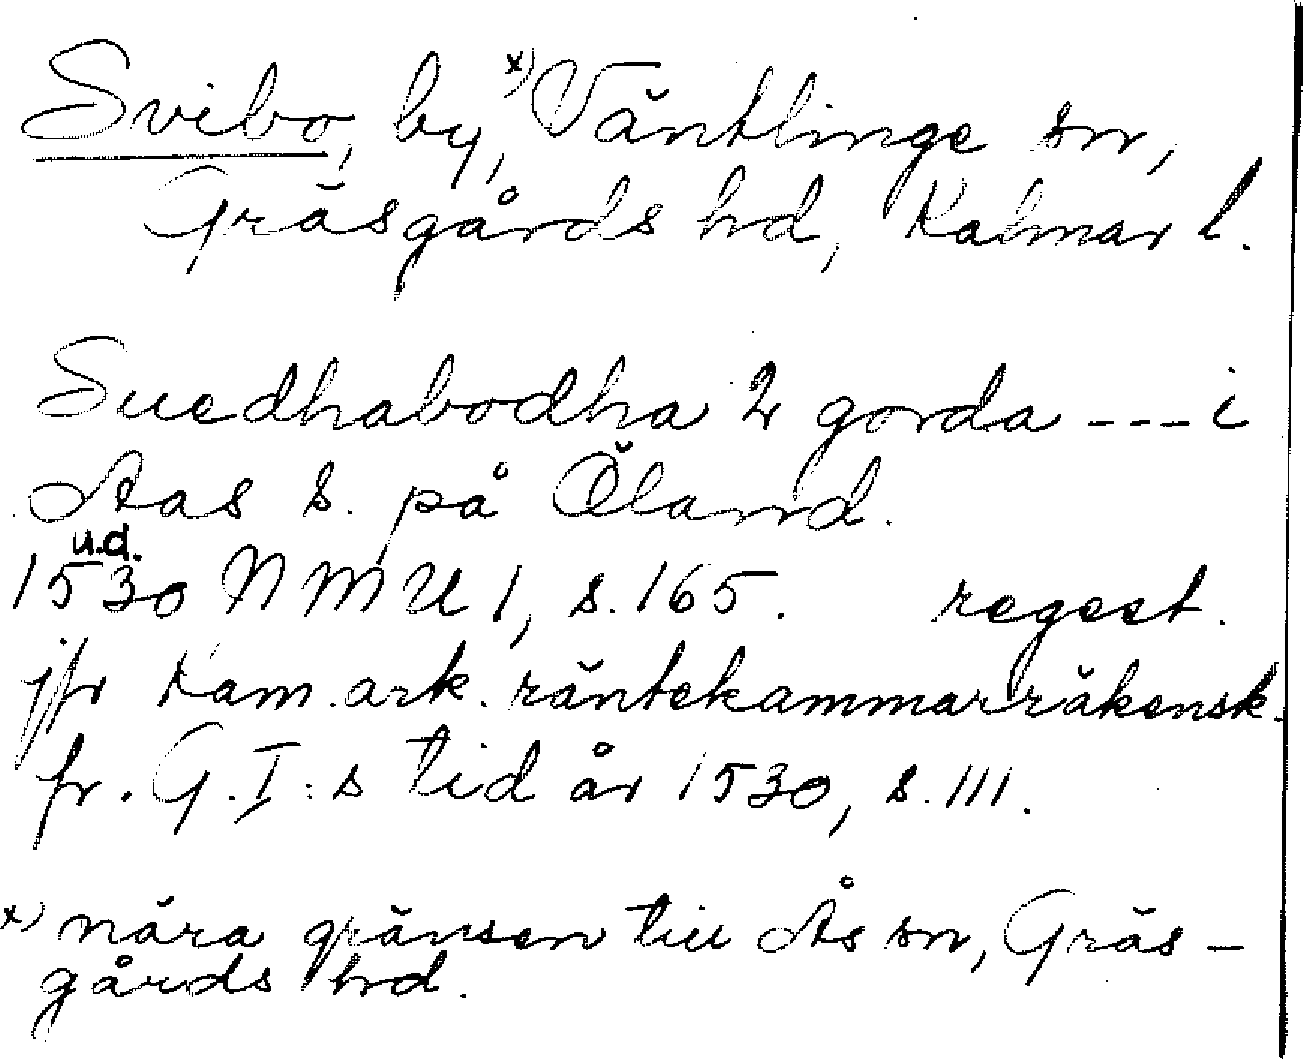 Svibo, by, x) Väntlinge sn,
Gräsgårds hd, Kalmar l.
Suedhabodha 2 gorda --- i
Aas s. på Öland.
u.d.
1530 NMU 1, s. 165. regest.
jfr Kam. ark. räntekammarräkensk.
fr. G.I:s tid år 1530, s. 111.
x) nära gränsen till Ås sn, Gräs-
gårds hd.